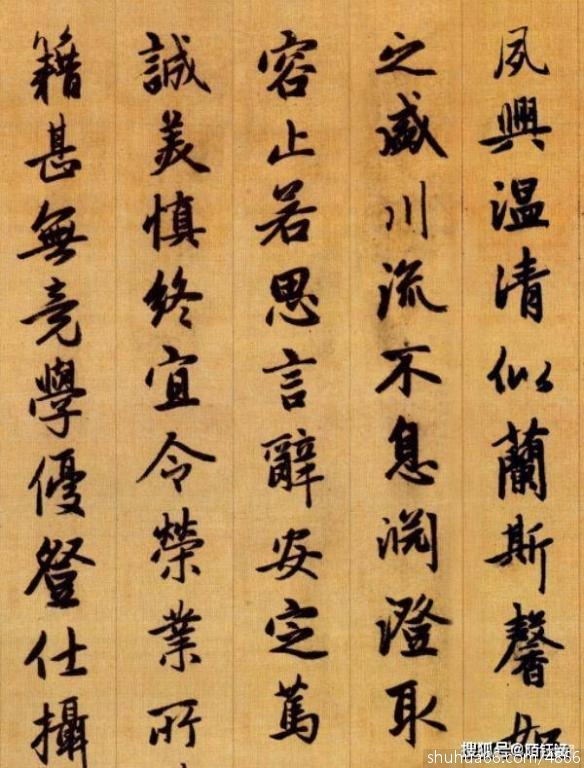 夙興温清似蘭斯馨如
之盛川流不息淵澄取
容止若思言辭安定篤
誠美慎終宜令榮業所
籍甚無竟學優登仕攝
搜狐号@